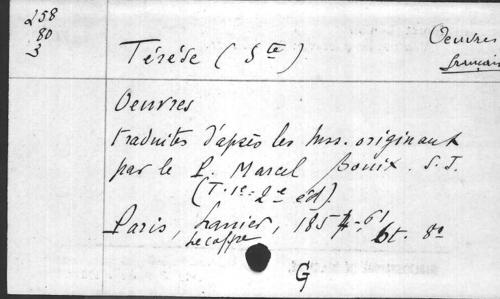 258
80
3
Térése (Ste)
Oeuvres
français
Oeuvres
traduites d'après les mss. originaux
par le P. Marcel Bouix. S.J.
(T. 1e = 2e éd).
Paris, Lanier, 1854-61 6t. 8o
Lecoffre
G